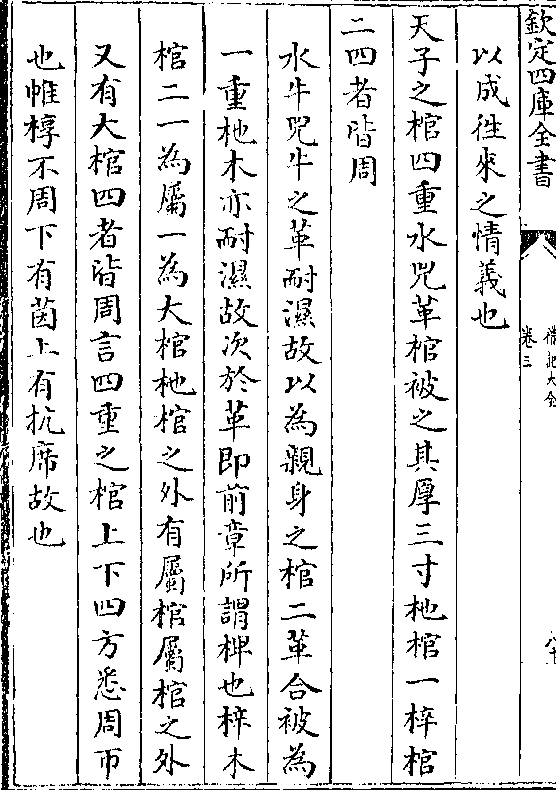 欽定四庫全書
禮記大全
卷三
以成徃來之情義也
天子之棺四重水兕革棺被之其厚三寸杝棺一梓棺
二四者皆周
水牛兕牛之革耐濕故以為親身之棺二革合被為
一重杝木亦耐濕故次於革即前章所謂椑也梓木
棺二一為屬一為大棺杝棺之外有屬棺屬棺之外
又有大棺四者皆周言四重之棺上下四方悉周帀
也惟椁不周下有茵上有抗席故也